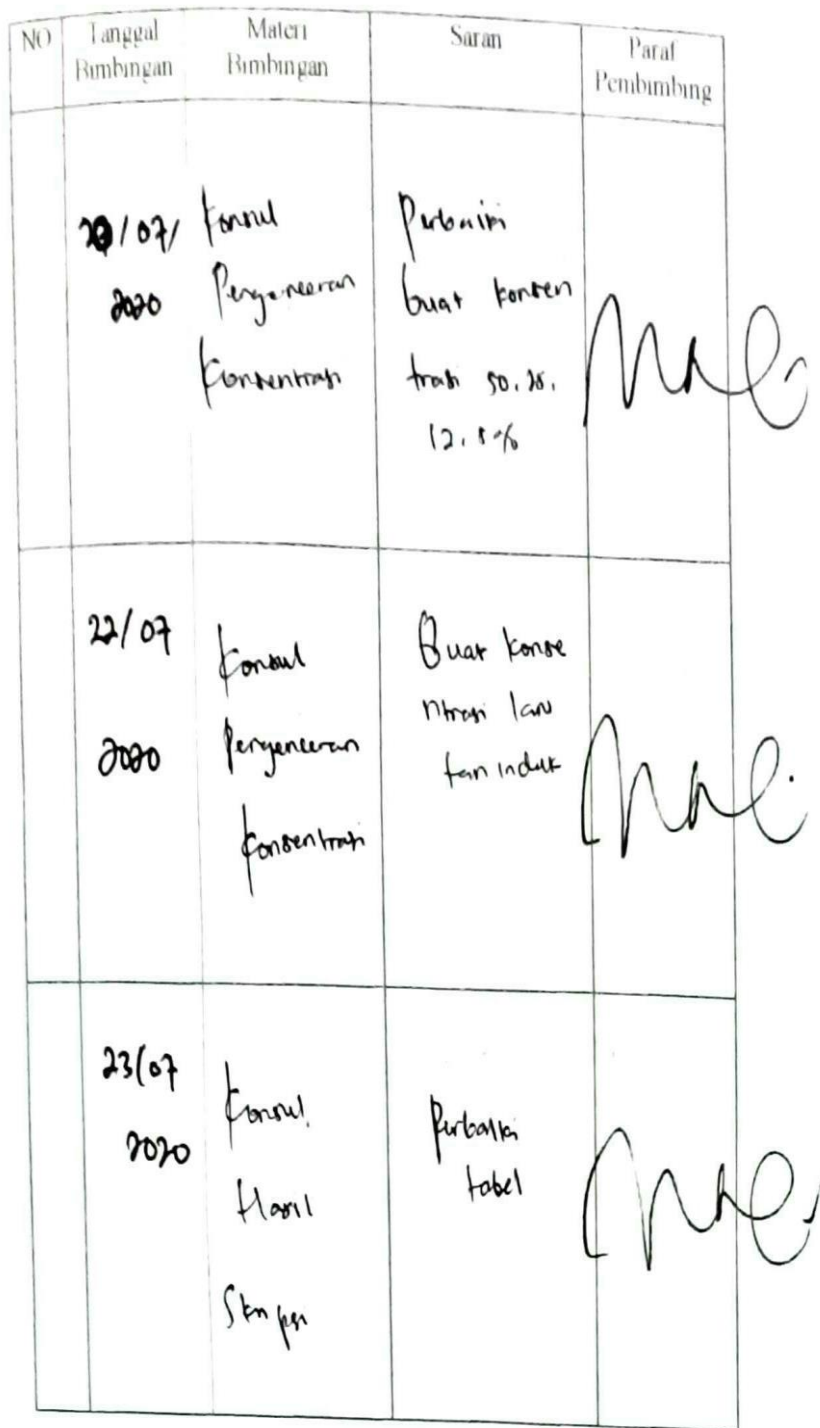 NO
Tanggal
Bimbingan
Materi
Bimbingan
Saran
Paraf
Pembimbing
20/07/
2020
Konsul
Pengenceran
Konsentrasi
Perbaiki
buat konsen
trasi 50, 25,
12,5%
22/07
2020
Konsul
Pengenceran
Konsentrasi
Buat konse
ntrasi laru
tan induk
23/07
2020
Konsul
Hasil
Skripsi
Perbaiki
tabel